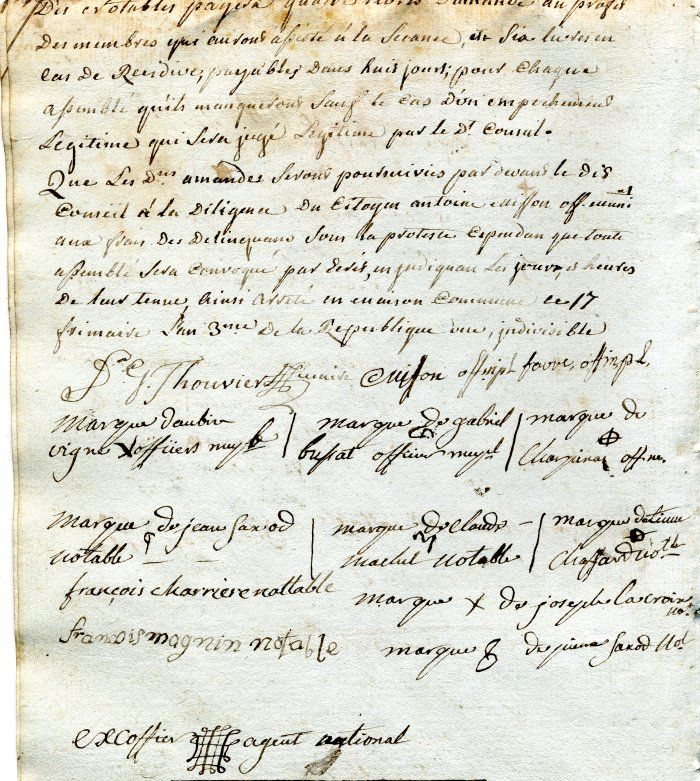 Des notables payera quatre livres d'amande au profit
Des membres qui auront assisté à la Séeance, et Six livres en
cas de Recidive, payables dans huit jours, pour chaque
assemblé qu'ils manquerons Sauf le cas d'un empechement
Legitime qui Sera jugé Legitime par le dt Conseil.
Que Les Dtes amandes Serons poursuivies par devant le dit
Conseil à la Diligence Du Citoyen antoine off. muni
aux frais Des Delinquans Sous la proteste Cependan que toute
assemblé Sera Convoqué par Ecrit, en indiquan Les jours, et heures
De leur tenue, Ainsi arreté en maison Commune ce 17
frimaire L'an 3me de la Republique une, indivisible
G. Thouvier maire Cuisson offipl favre, offipl.
Marque daubin
vigne X offiiers mupl
marque De gabriel
bussat officier mupl
marque de
off m.
Marque de jean Saxod
notable
marque de Claude
machet notable
marque detienne
Chaffard notle
françois charriere nottable
marque X de joseph la croix no.
francois magnin notable
marque de pierre Saxod Not
excoffier agent national